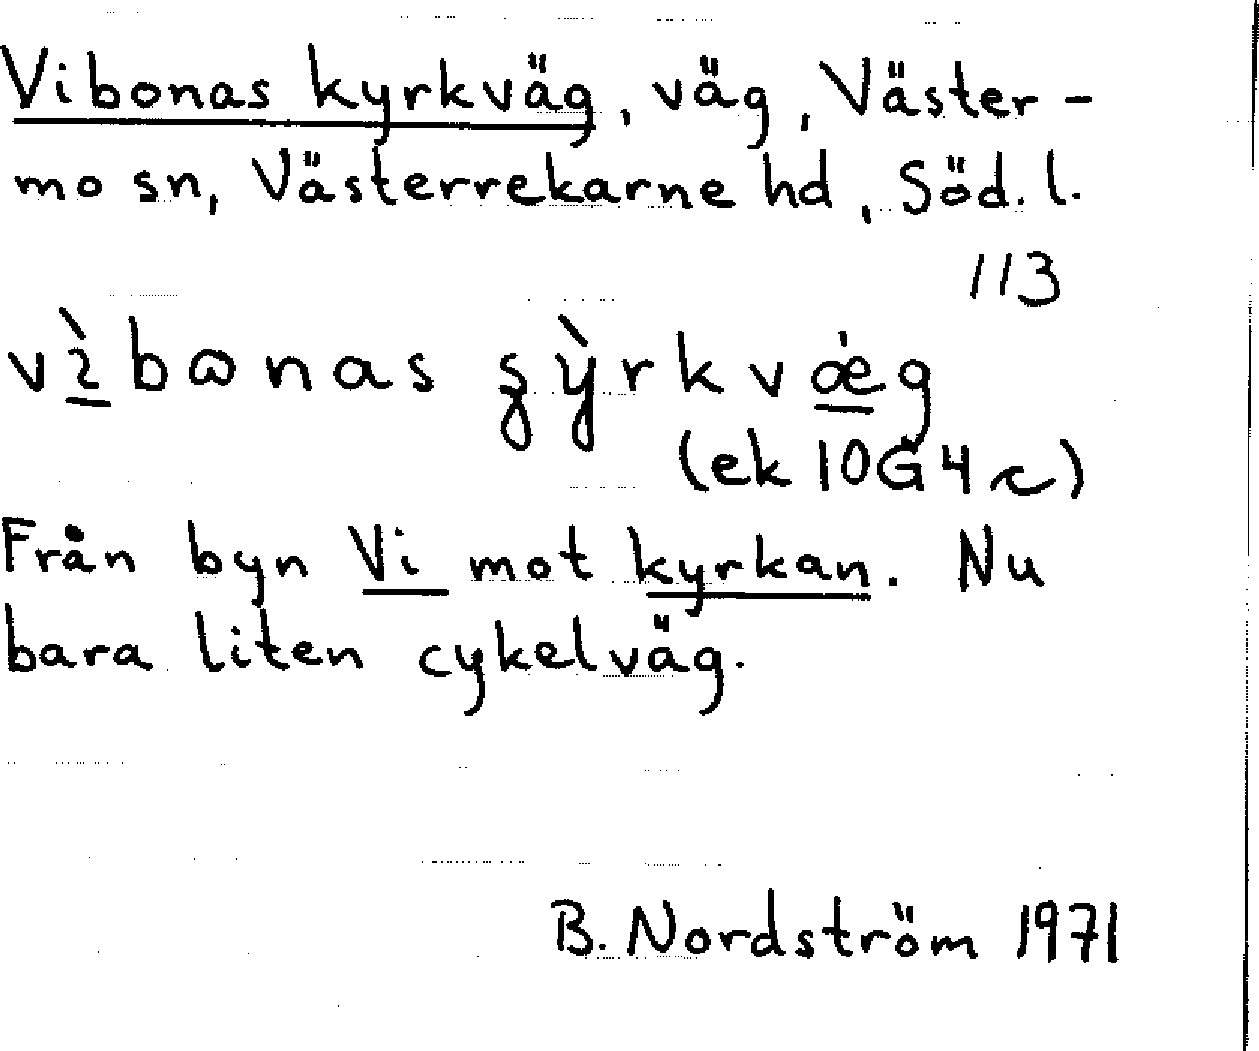 Vibonas kyrkväg, väg, Väster-
mo sn, Västerrekarne hd, Söd. l.
113
(ek 10G4c)
Från byn Vi mot kyrkan. Nu
bara liten cykelväg.
B. Nordström 1971